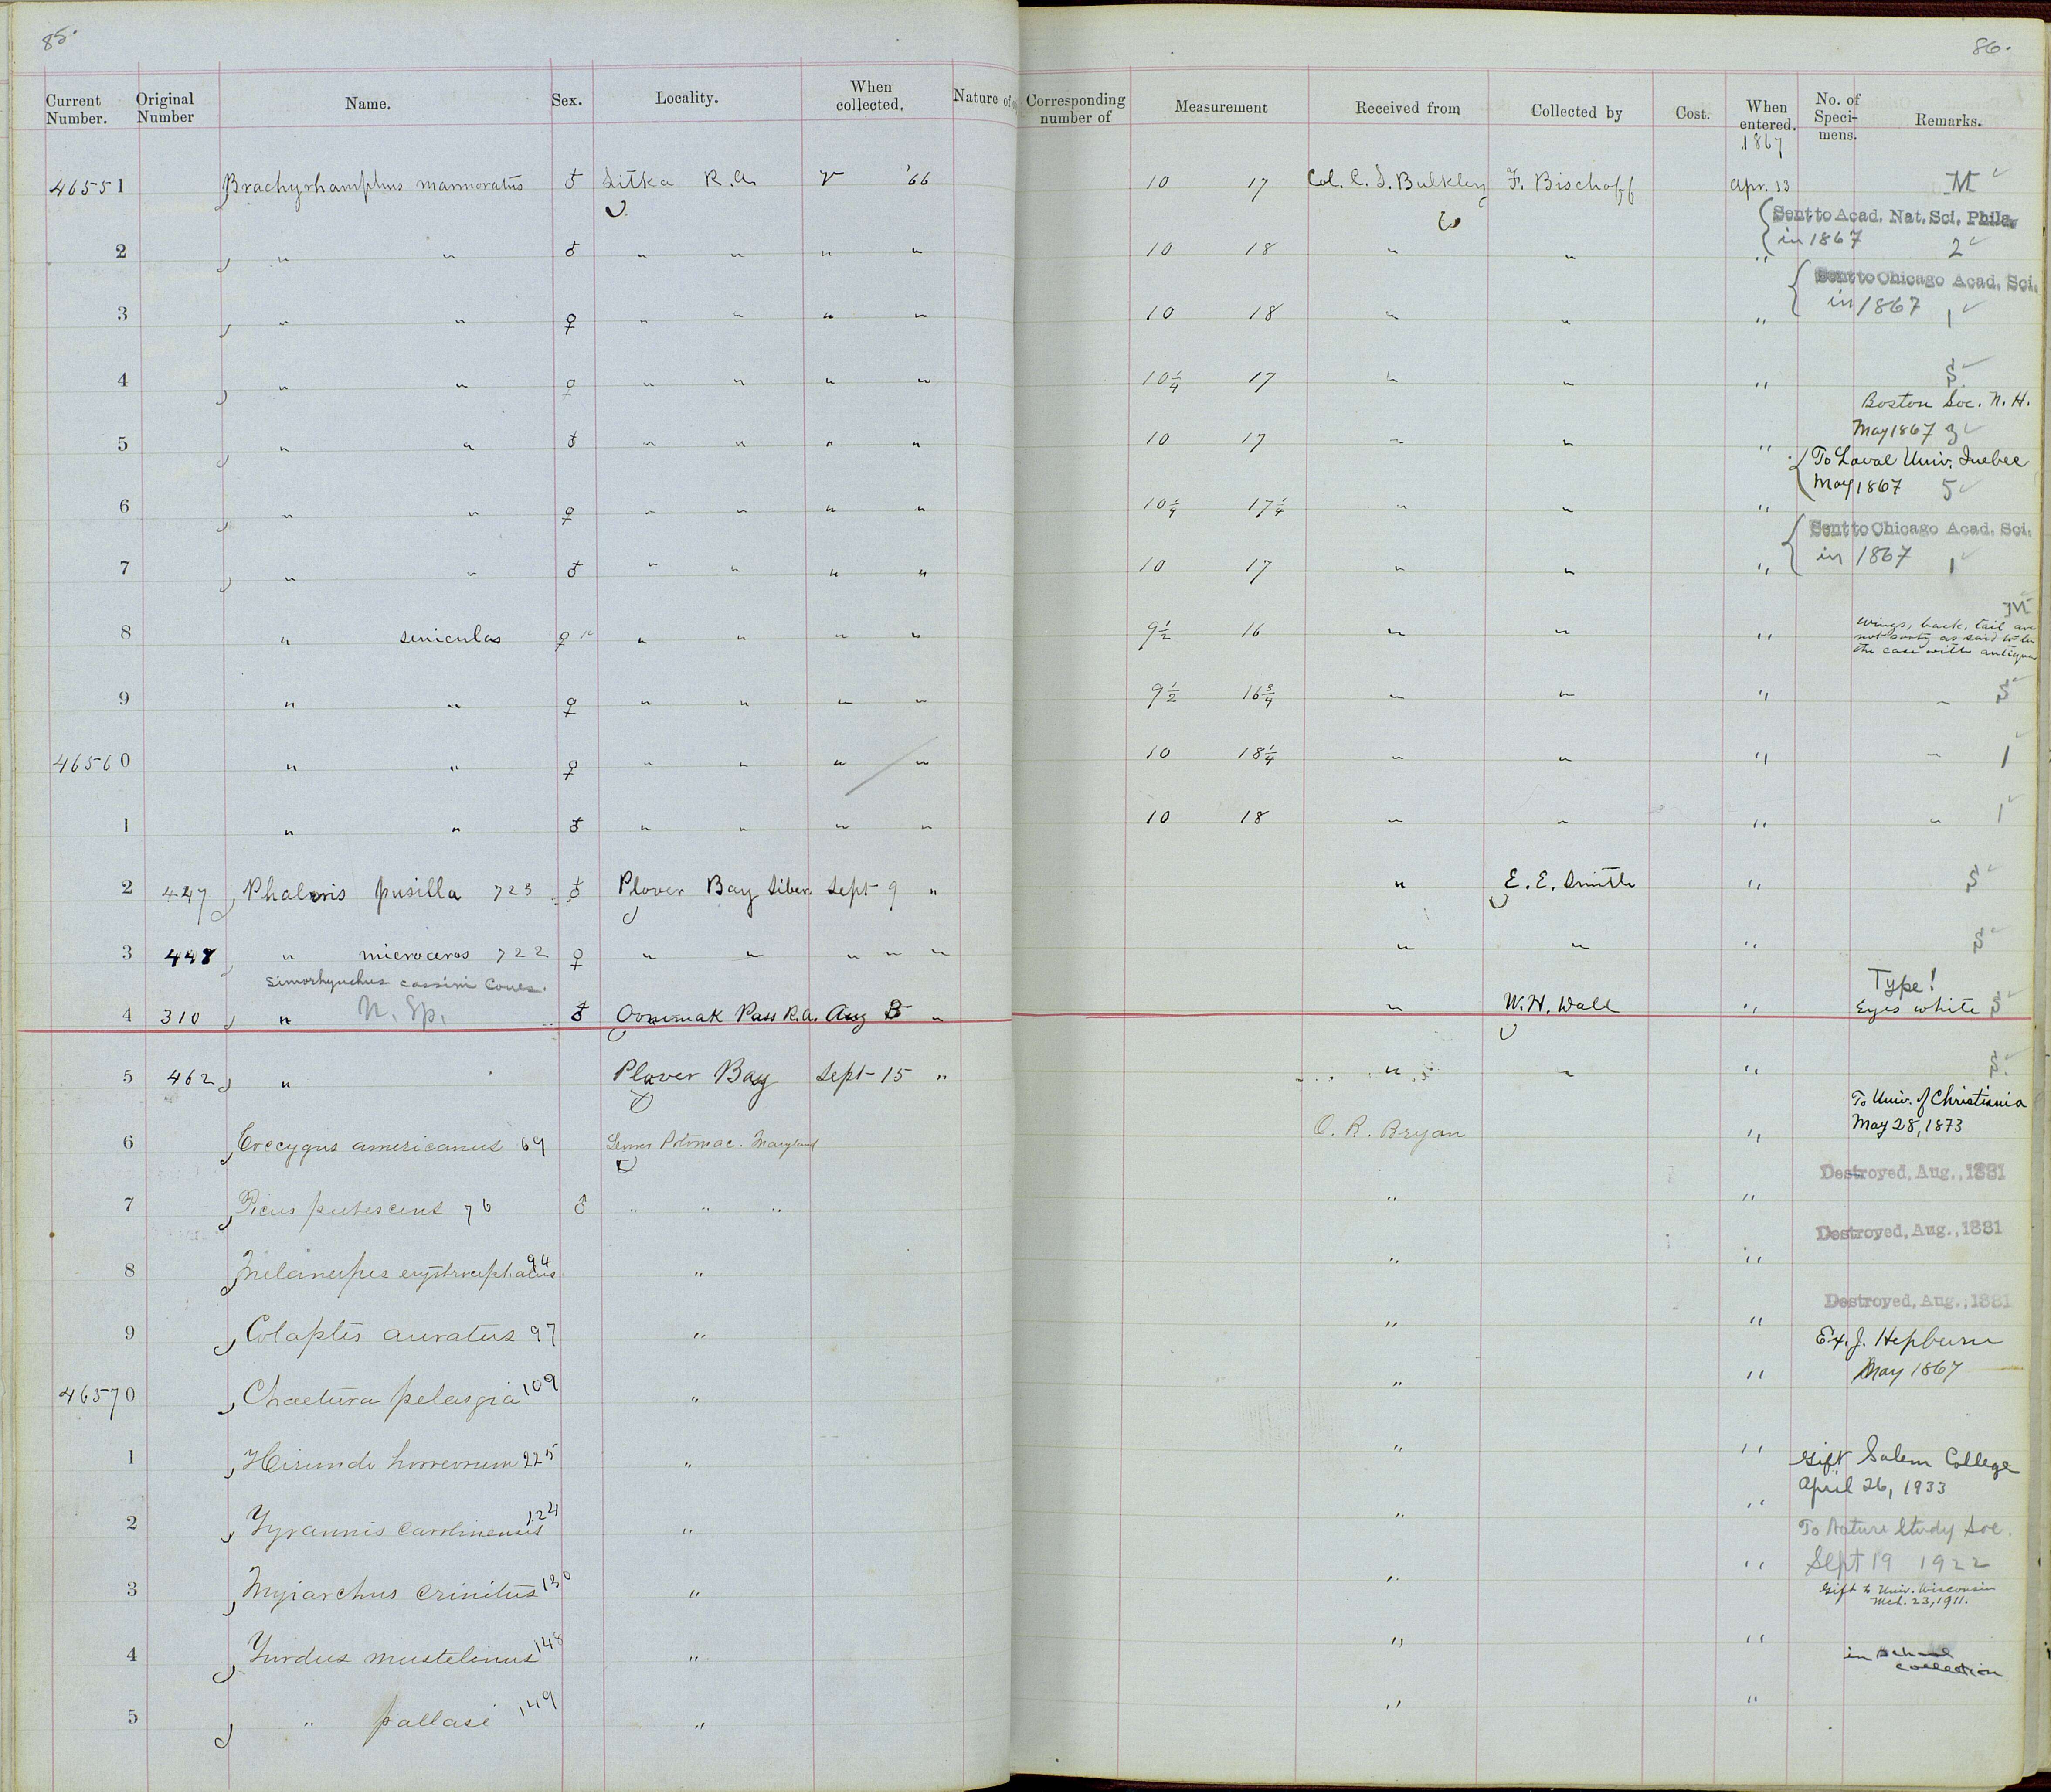 85.
86.
Current Number. Original Number Name. Sex. Locality. When collected. Nature of Corresponding number of Measurement Received from Collected by Cost. When entered. No. of Specimens. Remarks.
1867
46551 Brachyrhamphus marmoratus ♂ Sitka R.A. V '66 10 17 Col. C. S. Bulkley F. Bischoff Apr. 13 M
Sent to Acad. Nat. Sci. Phila.
in 1867
2 " " ♂ " " " " 10 18 " " " 2
Sent to Chicago Acad. Sci.
in 1867
3 " " ♀ " " " " 10 18 " " " 1
4 " " ♀ " " " " 10 1/4 17 " " " S.
Boston Soc. N. H.
May 1867 3
5 " " ♂ " " " " 10 17 " " "
To Laval Univ. Quebec
May 1867 5
6 " " ♀ " " " " 10 1/4 17 1/4 " " "
Sent to Chicago Acad. Sci.
in 1867 1
7 " " ♂ " " " " 10 17 " " "
M
8 " ♀ " " " " 9 1/2 16 " " " wings, back, tail are
not sooty as said to be
the case with antiquus
9 " " ♀ " " " " 9 1/2 16 3/4 " " " " S
46560 " " ♀ " " " " 10 18 1/4 " " " " 1
1 " " ♂ " " " " 10 18 " " " " 1
2 447 Phaleris pusilla 723 ♂ Plover Bay Siber. Sept 9 " " E. E. Smith " S
3 448 " microceros 722 ♀ " " " " " " " " S
Simorhynchus cassini Coues.
Type!
4 310 " N. Sp. ♂ Oonimak Pass R.A. Aug 5 " " W. H. Wall " Eyes white S
5 462 " Plover Bay Sept 15 " " " " S.
To Univ. of Christiania
May 28, 1873
6 Coccygus americanus 69 Lower Potomac. Maryland O. R. Bryan "
Destroyed, Aug., 1881
7 Picus pubescens 76 ♂ " " " " "
Destroyed, Aug., 1881
8 Melanerpes erythrocephalus 94 " " "
Destroyed, Aug., 1881
9 Colaptes auratus 97 " " "
Ex. J. Hepburn
May 1867
46570 Chaetura pelasgia 109 " " "
1 Hirundo horreorum 225 " " "
Gift Salem College
April 26, 1933
2 Tyrannis carolinensis 124 " " "
To Nature Study Soc.
Sept 19 1922
3 Myiarchus crinitus 130 " " "
Gift to Univ. Wisconsin
Mch. 23, 1911.
4 Turdus mustelinus 148 " " "
in School
collection
5 " pallasi 149 " " "